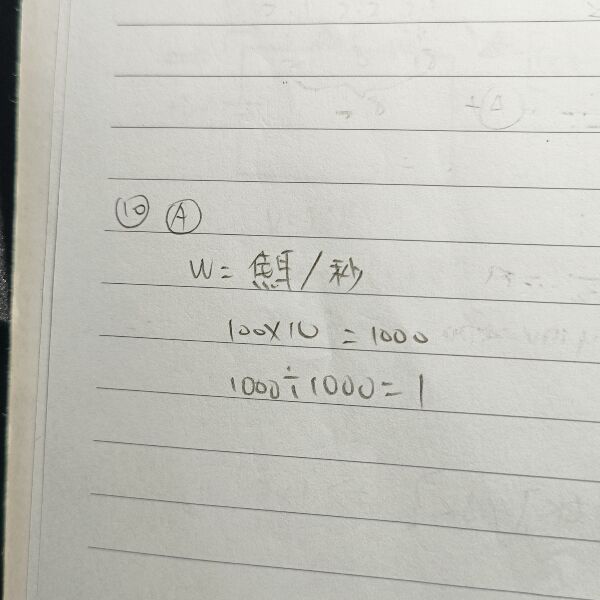 ⑩ Ⓐ
W = 焦耳/秒
100×10 = 1000
1000÷1000 = 1